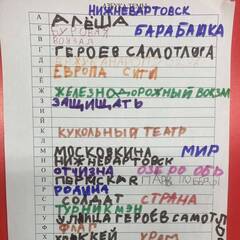 НИЖНЕВАРТОВСК
АЛЁША
БАРАБАШКА
БУРОВАЯ
ВОКЗАЛ
ГЕРОЕВ САМОТЛОРА
ЕВРОПА СИТИ
ЖЕЛЕЗНОДОРОЖНЫЙ ВОКЗАЛ
ЗАЩИЩАТЬ
КУКОЛЬНЫЙ ТЕАТР
МОСКОВКИНА МИР
НИЖНЕВАРТОВСК
ОТЧИЗНА ОЗЕРО ОБЬ
ПЕРМСКАЯ ПАРК ПОБЕДЫ
РОДИНА
СОЛДАТ СТРАНА
ТУРНИКМЭН
УЛИЦА ГЕРОЕВ САМОТЛ
ФЛАГ
ХОККЕЙ ХРАМ